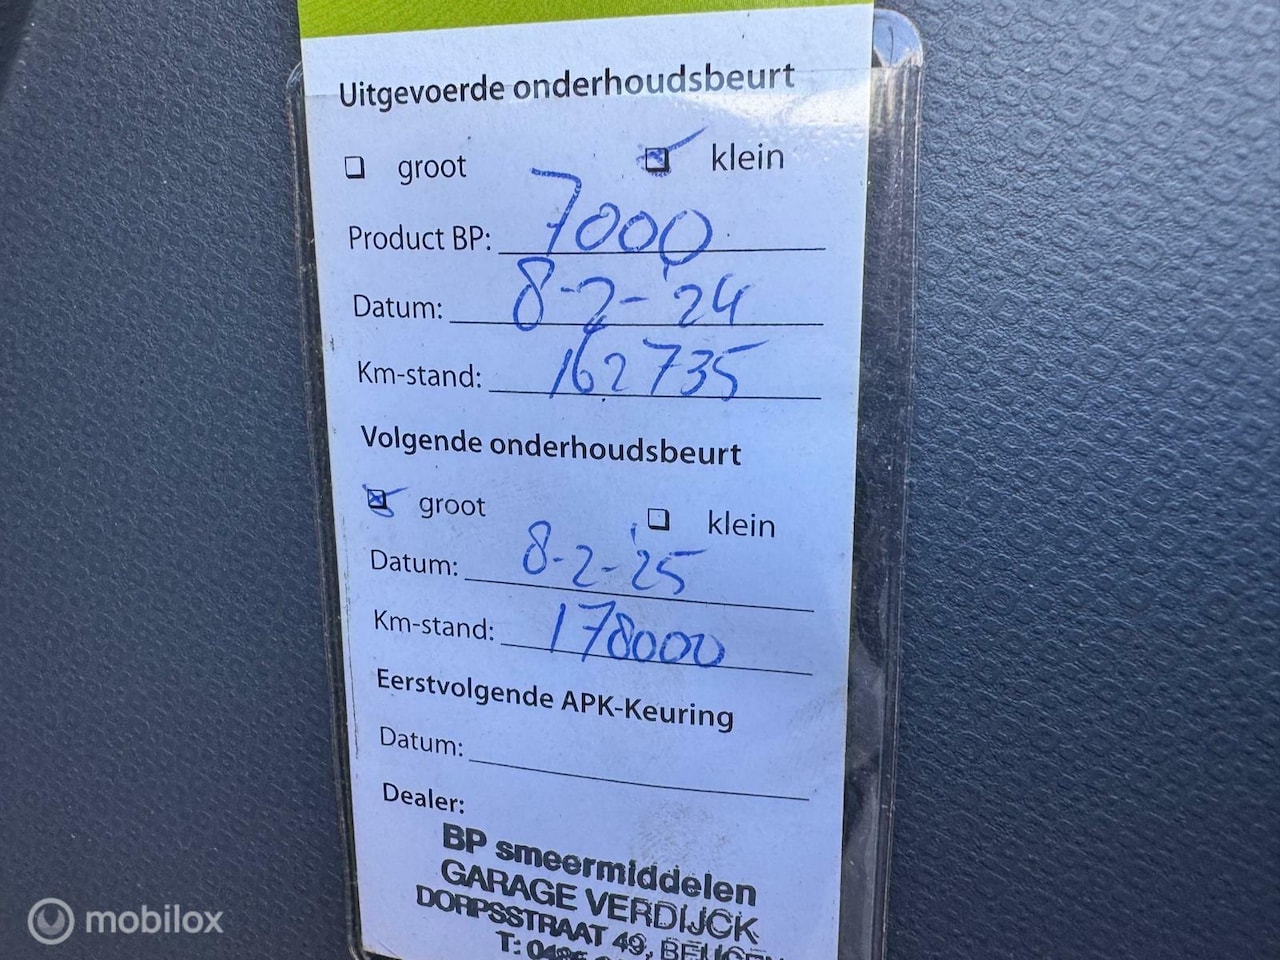 Uitgevoerde onderhoudsbeurt
groot klein
Product BP: 7000
Datum: 8-2-'24
Km-stand: 162735
Volgende onderhoudsbeurt
groot klein
Datum: 8-2-'25
Km-stand: 178000
Eerstvolgende APK-Keuring
Datum:
Dealer:
BP smeermiddelen
GARAGE VERDIJCK
DORPSSTRAAT 49,
T:
mobilox